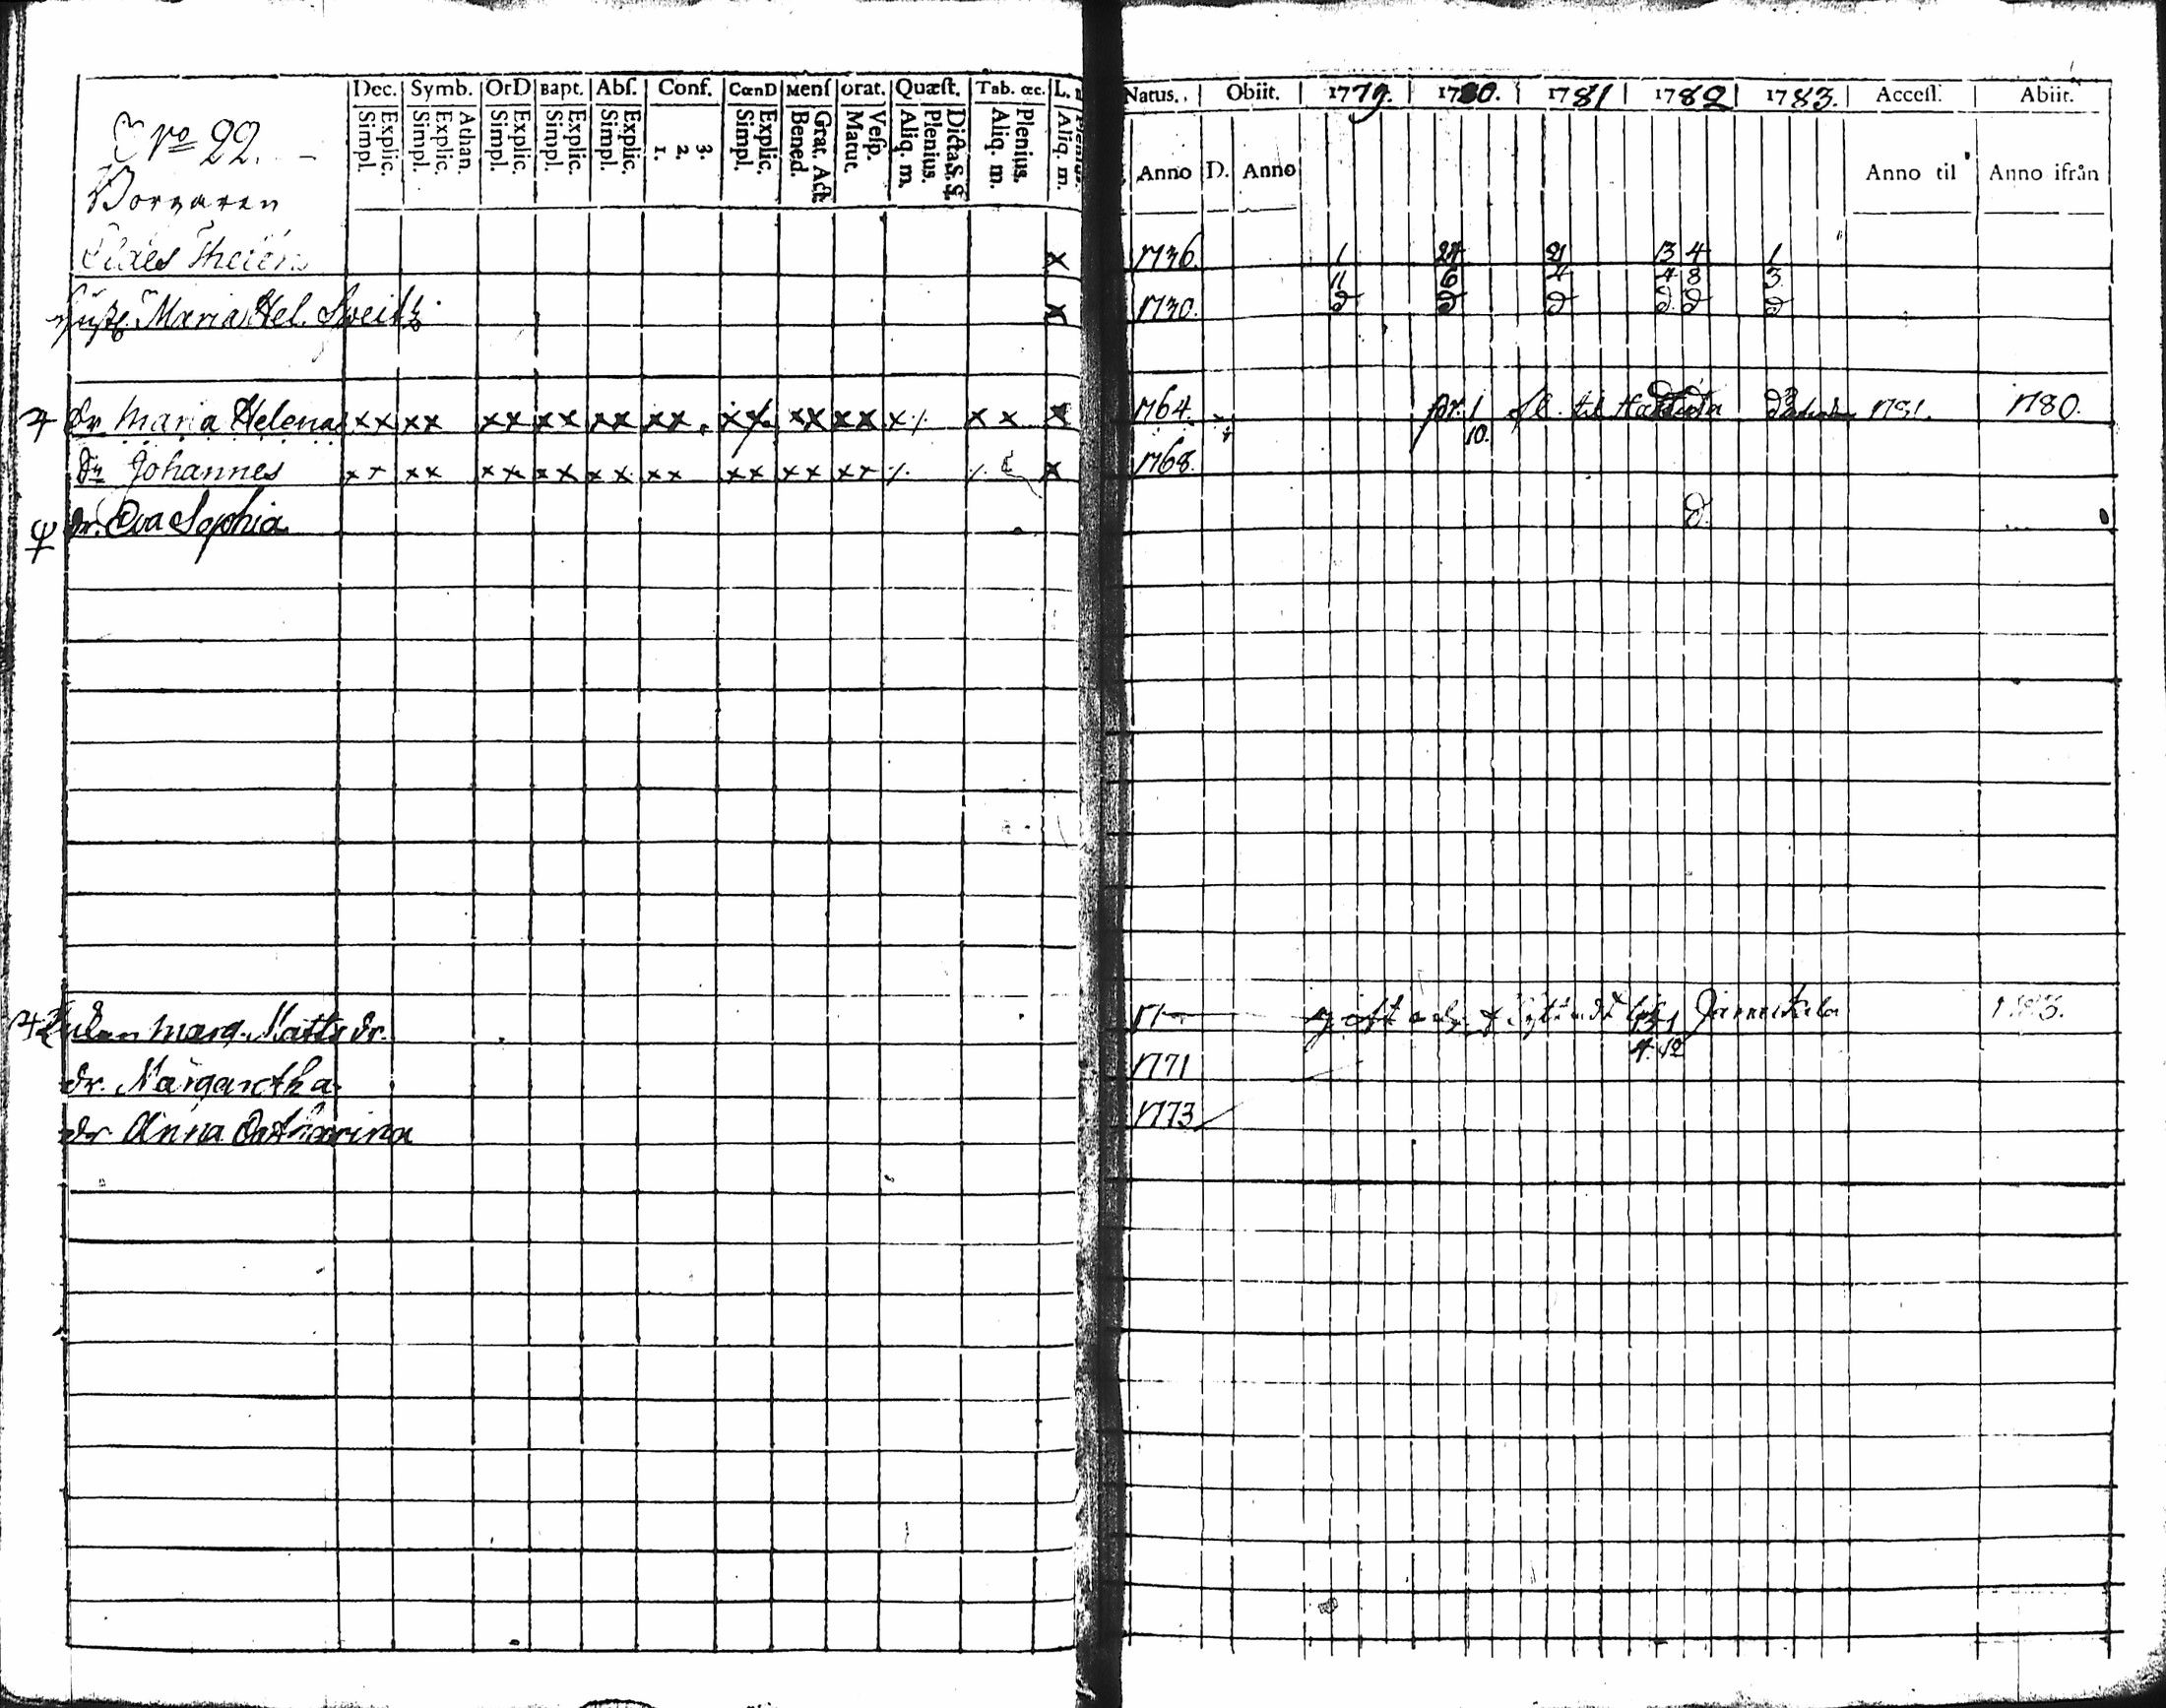 Dec. Symb. OrD Bapt. Abſ. Conf. CœnD Menſ Orat. Quæſt. Tab. œc. L.
Simpl. Explic. Simpl. Explic. Athan. Simpl. Explic. Simpl. Explic. Simpl. Explic. 1. 2. 3. Simpl. Explic. Bened. Grat. Act. Matut. Veſp. Aliq. m. Plenius. Dicta S. S. Aliq. m. Plenius. Aliq. m.
Natus. Obiit. 1779. 1780. 1781 1782 1783. Acceſſ. Abiit.
Anno D. Anno Anno til Anno ifrån
No 22.
Borgaren
Claes Thelén x 1736. 1 24 21 13 4 1
11 6 4 4 8 3
Maria Hel. x 1730. D D D D D D
Dr Maria Helena xx xx xx xx xx xx xx xx xx x x x x 1764. 1 til 1781. 1780.
10.
Johannes xx xx xx xx xx xx xx xx xx x 1768.
Dr. Eva Sophia D.
Enkan Marg. Matts dr.
4 12
Dr. Margaretha 1771
Dr Anna Catharina 1773